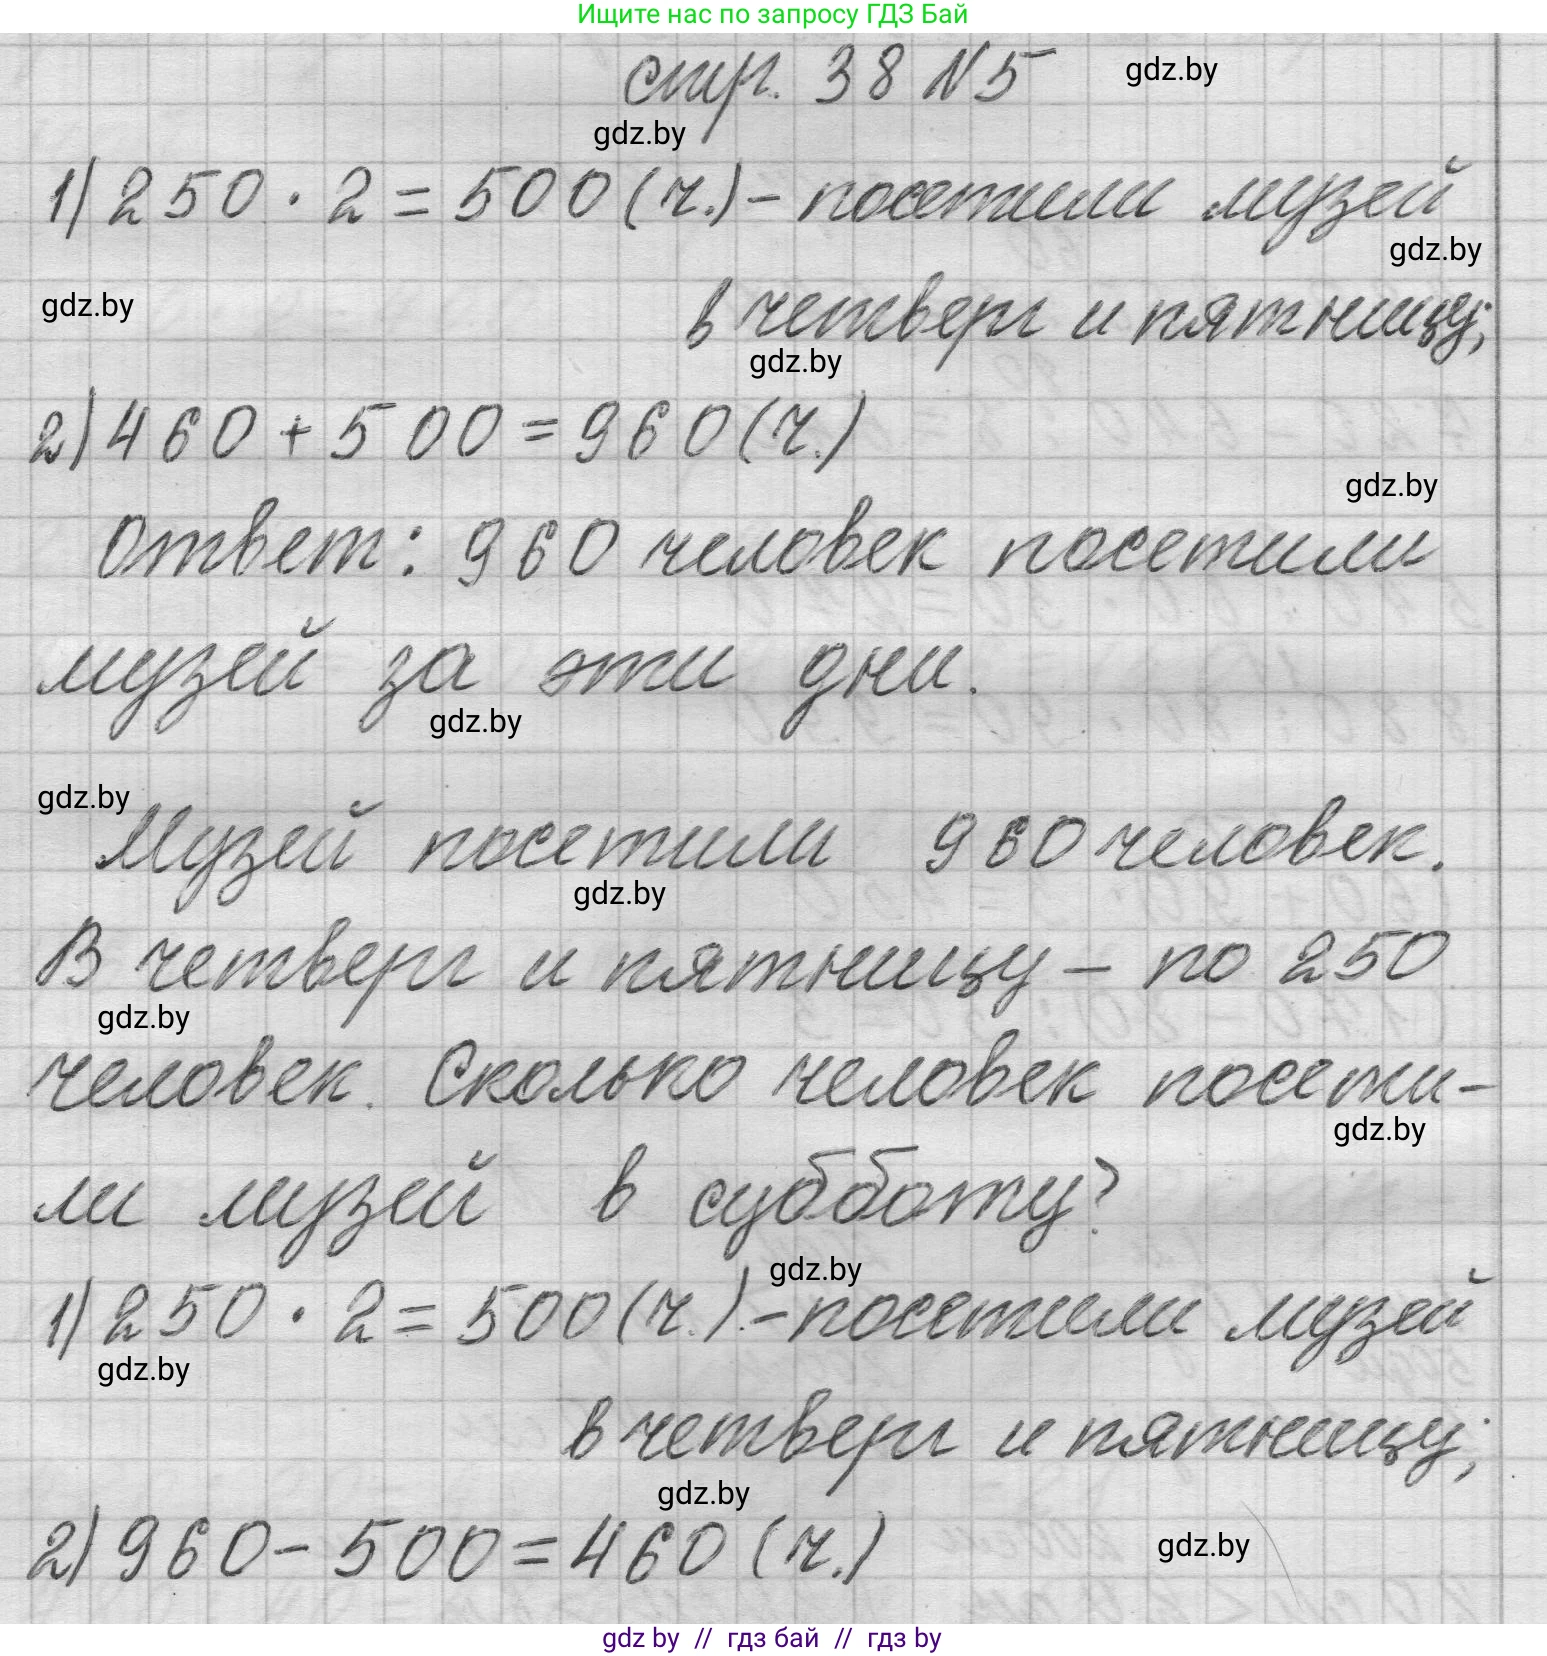 Ищите нас по запросу ГДЗ Бай
стр. 38 N5
gdz.by
gdz.by
1) 250 · 2 = 500 (ч.) - посетили музей
gdz.by
gdz.by
в четверг и пятницу;
gdz.by
2) 460 + 500 = 960 (ч.)
gdz.by
Ответ: 960 человек посетили
музей за эти дни.
gdz.by
gdz.by
Музей посетили 960 человек.
gdz.by
В четверг и пятницу – по 250
gdz.by
человек. Сколько человек посети-
gdz.by
ли музей в субботу?
gdz.by
1) 250 · 2 = 500 (ч.) - посетили музей
gdz.by
в четверг и пятницу;
gdz.by
2) 960 - 500 = 460 (ч.)
gdz.by
gdz by // гдз бай // гдз by